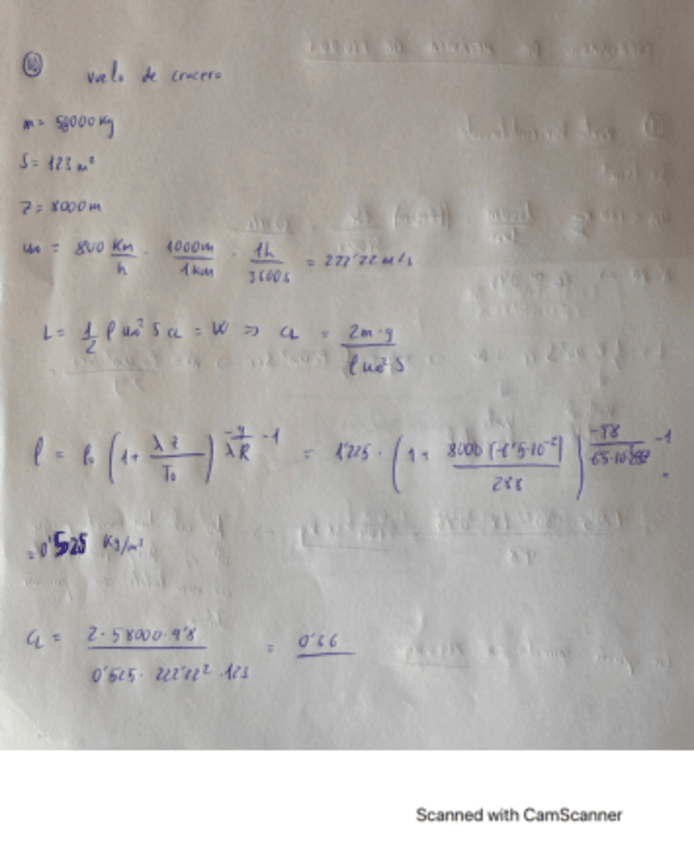 vuelo de crucero
m = 58000 kg
S = 123 m²
z = 8000 m
u∞ = 800 Km/h · 1000m/1km · 1h/3600s = 222'22 m/s
L = 1/2 ρ u∞² S CL = W ⇒ CL = 2m·g / ρ u∞² S
ρ = ρ₀ (1 + λz/T₀)^(-g/λR - 1) = 1'225 · (1 + 8000 (-6'5·10⁻³)/288)
= 0'525 Kg/m³
CL = 2·58000·9'8 / 0'525 · 222'22² · 123 = 0'36
Scanned with CamScanner